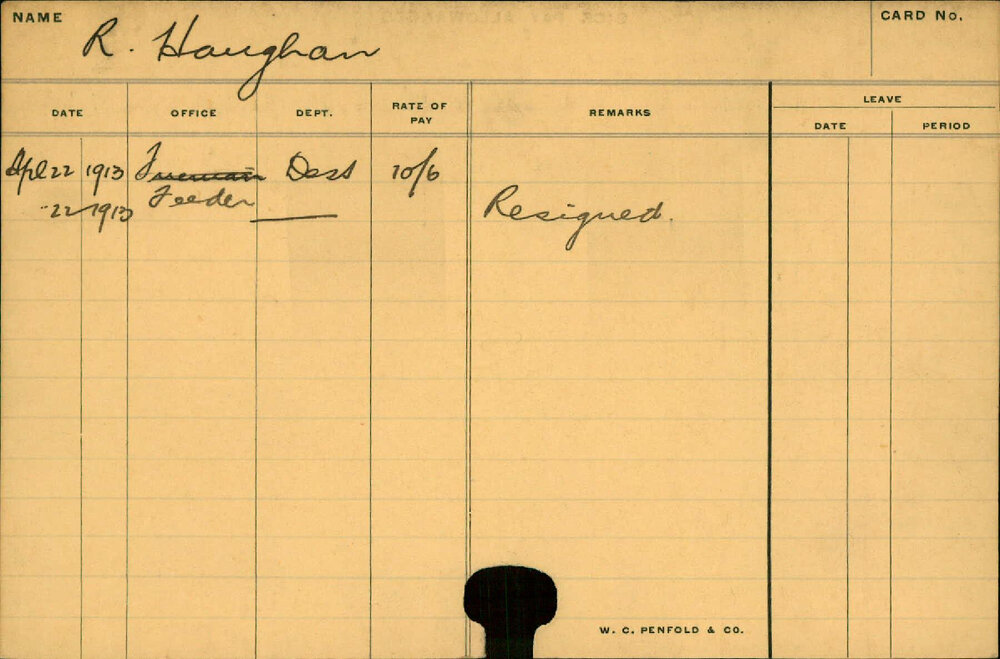 NAME
R. Haughan
CARD No.
DATE OFFICE DEPT. RATE OF PAY REMARKS LEAVE
DATE PERIOD
Apl 22 1913 Fireman Dest 10/6
" 22 1913 Feeder Resigned.
W. C. PENFOLD & CO.